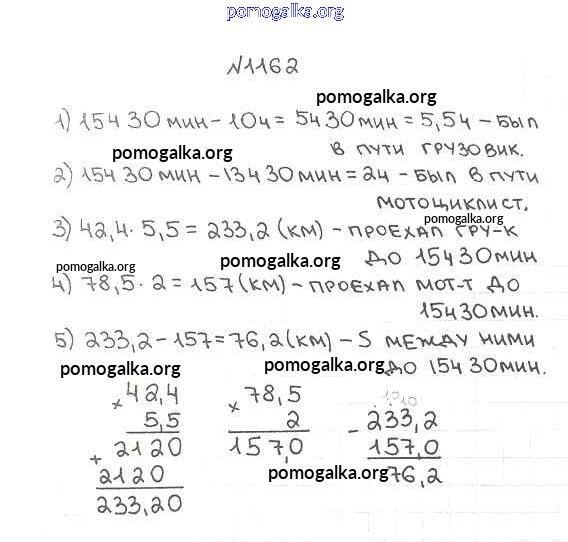 pomogalka.org
№1162
pomogalka.org
1) 15ч 30мин - 10ч = 5ч 30мин = 5,5ч - был
в пути грузовик.
pomogalka.org
2) 15ч 30мин - 13ч 30мин = 2ч - был в пути
мотоциклист.
pomogalka.org
3) 42,4 · 5,5 = 233,2 (км) - проехал гру-к
до 15ч 30мин
pomogalka.org pomogalka.org
4) 78,5 · 2 = 157 (км) - проехал мот-т до
15ч 30мин.
5) 233,2 - 157 = 76,2 (км) - S между ними
до 15ч 30мин.
pomogalka.org pomogalka.org
× 42,4
5,5
+ 2120
2120
233,20
× 78,5
2
157,0
10 10
- 233,2
157,0
76,2
pomogalka.org